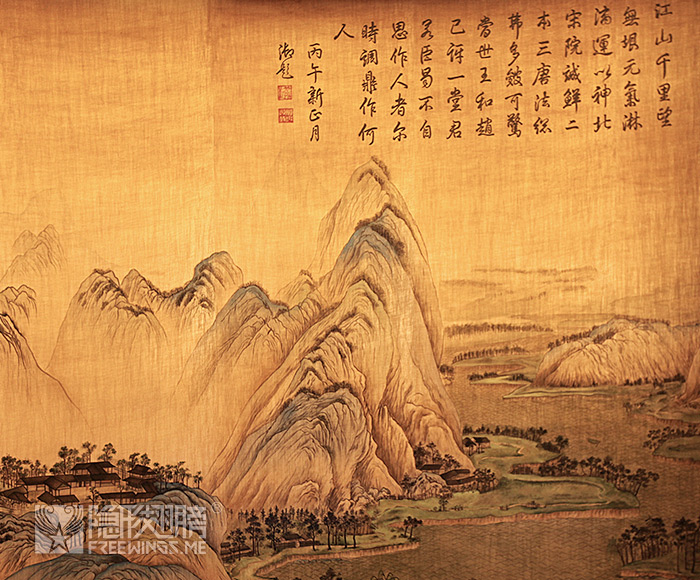 江山千里望
無垠元氣淋
漓運以神北
宋院誠鮮二
本三唐法總
弗多皴可驚
當世王和趙
已訝一堂君
若臣曷不自
思作人者尔
時調鼎作何
人
丙午新正月
御題
隐形翅膀
FREEWINGS.ME